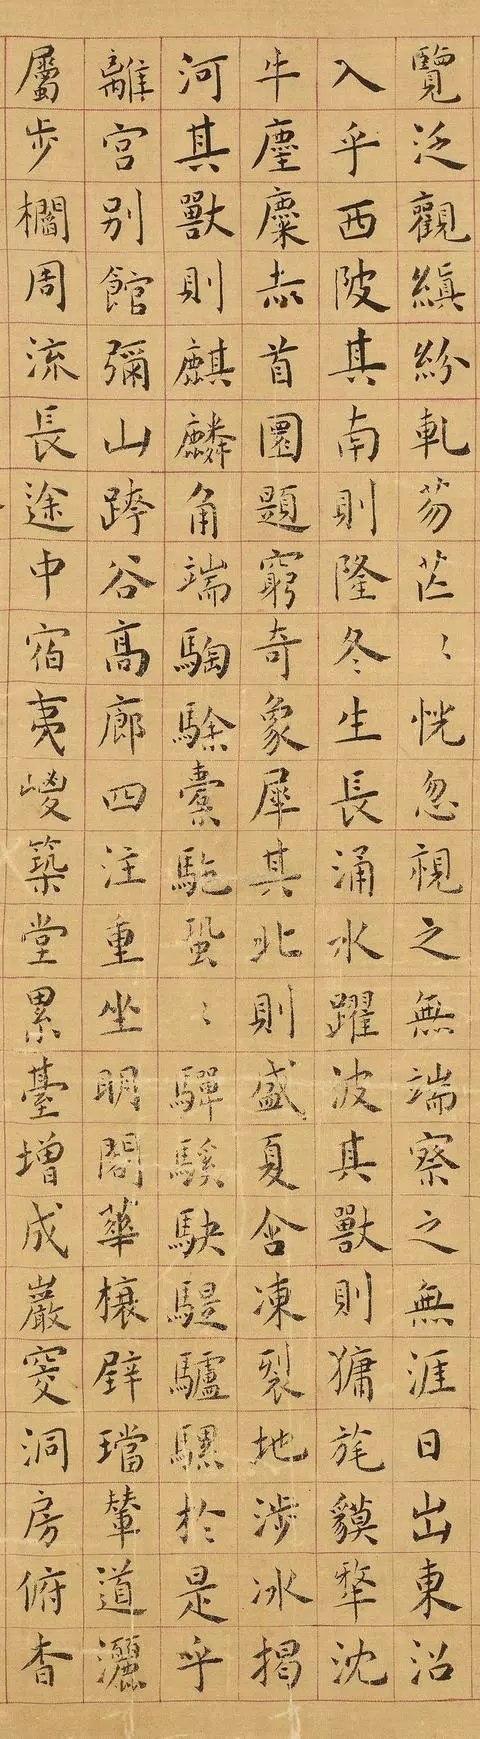 覽泛觀縝紛軋芴芒〻恍忽視之無端察之無涯日出東沼
入乎西陂其南則隆冬生長涌水躍波其獸則㺎旄貘犛沈
牛麈麋赤首圜題窮奇象犀其北則盛夏含凍裂地涉冰揭
河其獸則麒麟角端騊駼橐駞蛩〻驒騱駃騠驢騾於是乎
離宮別館彌山跨谷高廊四注重坐曲閣華榱璧璫輦道灑
屬步櫩周流長途中宿夷嵕築堂累臺增成巖窔洞房俯杳